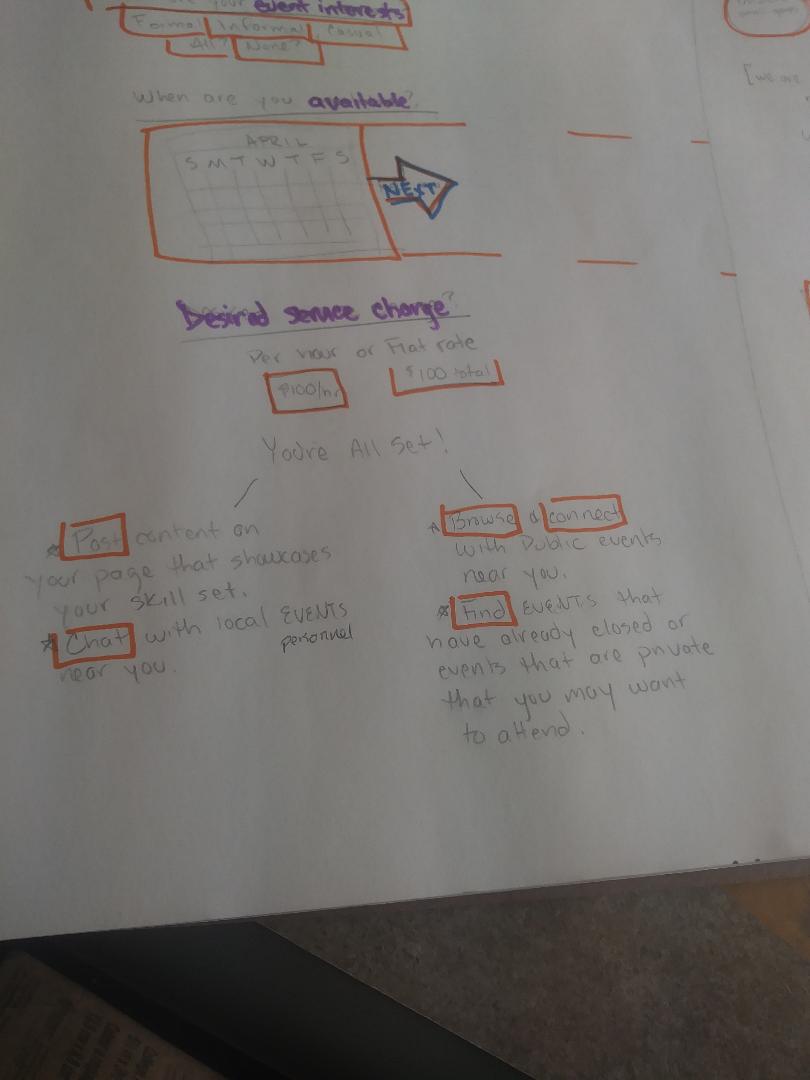 your event interests
Formal Informal, Casual
All? None?
When are you available?
APRIL
S M T W T F S
NEXT
Desired service charge?
Per hour or Flat rate
$100/hr $100 total
You're All Set!
Post content on
your page that showcases
your skill set.
Chat with local EVENTS
personnel
near you.
Browse & connect
with Public events
near you.
Find EVENTS that
have already closed or
events that are private
that you may want
to attend.
[we are